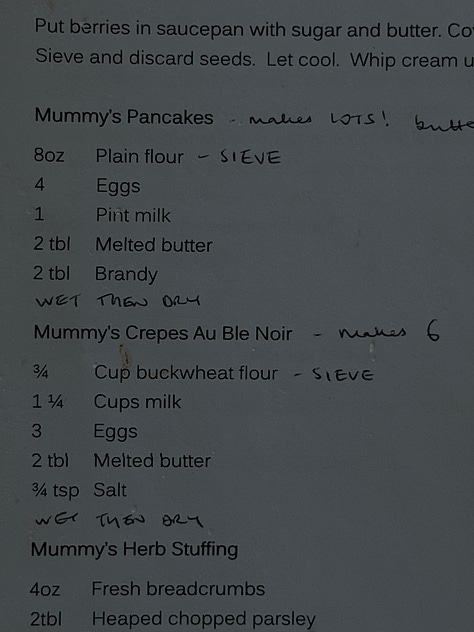 Put berries in saucepan with sugar and butter.
Sieve and discard seeds. Let cool. Whip cream
Mummy's Pancakes - makes LOTS!
8oz Plain flour - SIEVE
4 Eggs
1 Pint milk
2 tbl Melted butter
2 tbl Brandy
WET THEN DRY
Mummy's Crepes Au Ble Noir - makes 6
¾ Cup buckwheat flour - SIEVE
1 ¼ Cups milk
3 Eggs
2 tbl Melted butter
¾ tsp Salt
WET THEN DRY
Mummy's Herb Stuffing
4oz Fresh breadcrumbs
2tbl Heaped chopped parsley